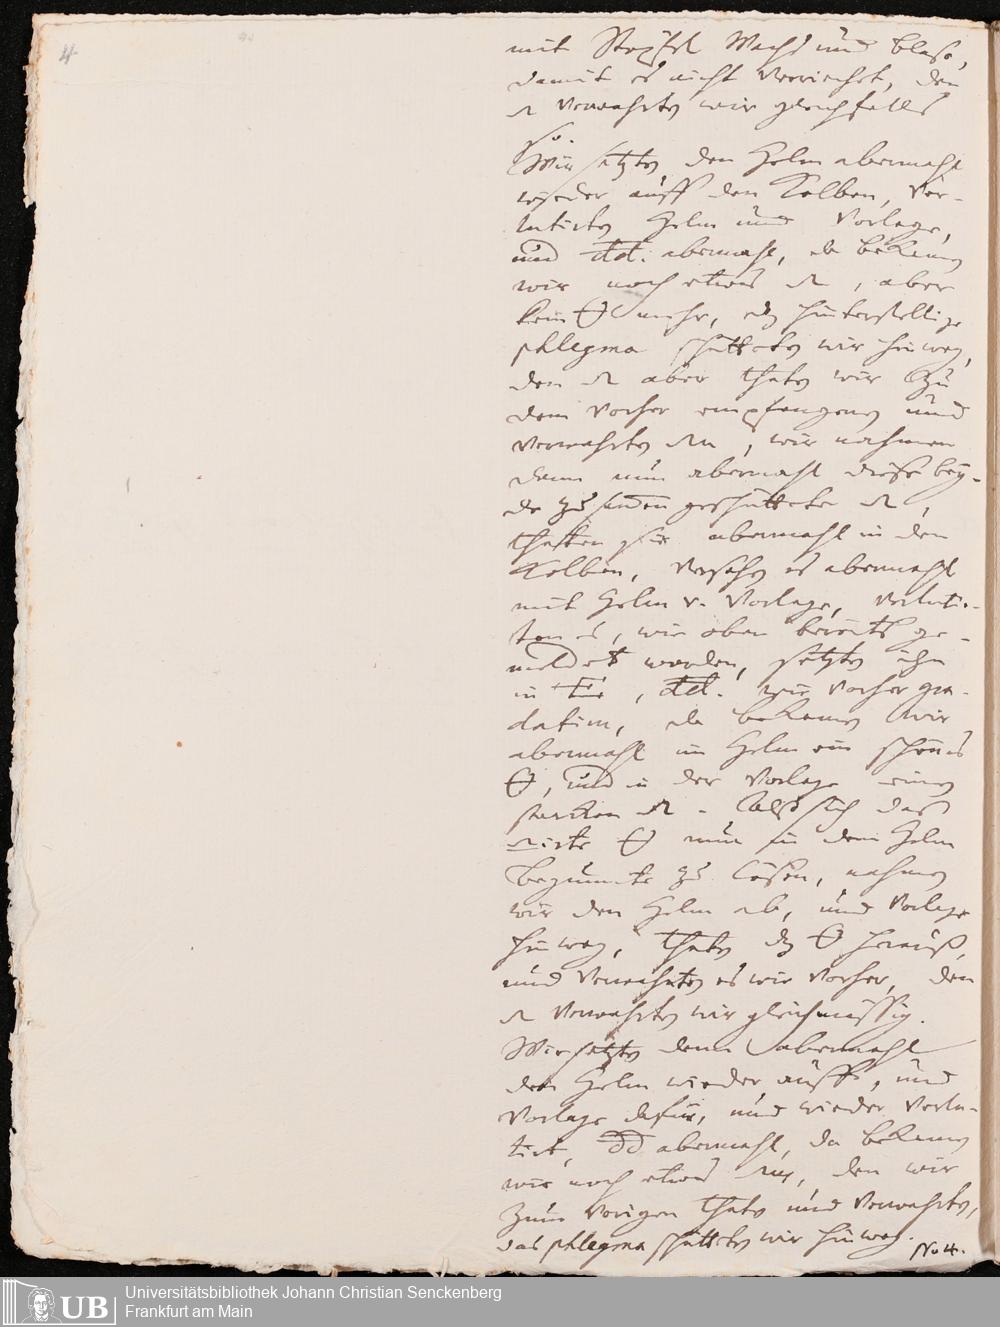 4
mit Stopfel Wachs und blaß,
damit es nicht verriechet, den
verwahrten wir gleichfalls
so.
Wir setzten den Helm abermahl
wieder auff den Kolben, ver-
lutirten Helm und Vorlage,
und dd. abermahl, da bekamen
wir noch etwas , aber
kein mehr, die hinterstellige
phlegma schütteten wir hinweg,
den aber thaten wir zu
dem vorher empfangenen und
verwahrten , wir nahmen
dann nun abermahl diese bey-
de zusamen geschüttete ,
thaten sie abermahl in den
Kolben, versahen es abermahl
mit Helm v. Vorlage, verluti-
ren es, wie oben bereits ge-
meldet worden, setzten ihn
in , dd. wie vorher gra-
datim, da bekamen wir
abermahl im Helm ein schönes
, und in der Vorlage einen
starcken . Alß sich das
nun in dem Helm
begunnte zu lösen, nahmen
wir den Helm ab, und Vorlage
hinweg, thaten herauß,
und verwahrten es wie vorher, den
verwahrten wir gleichmässig.
Wir setzten denn abermahl
den Helm wieder auff, und
Vorlage dafür, und wieder verlu-
tirt, dd abermahl, da bekamen
wir noch etwas , den wir
zum vorigen thaten und verwahrten,
das phlegma schütteten wir hinweg.
No 4.
UB
Universitätsbibliothek Johann Christian Senckenberg
Frankfurt am Main